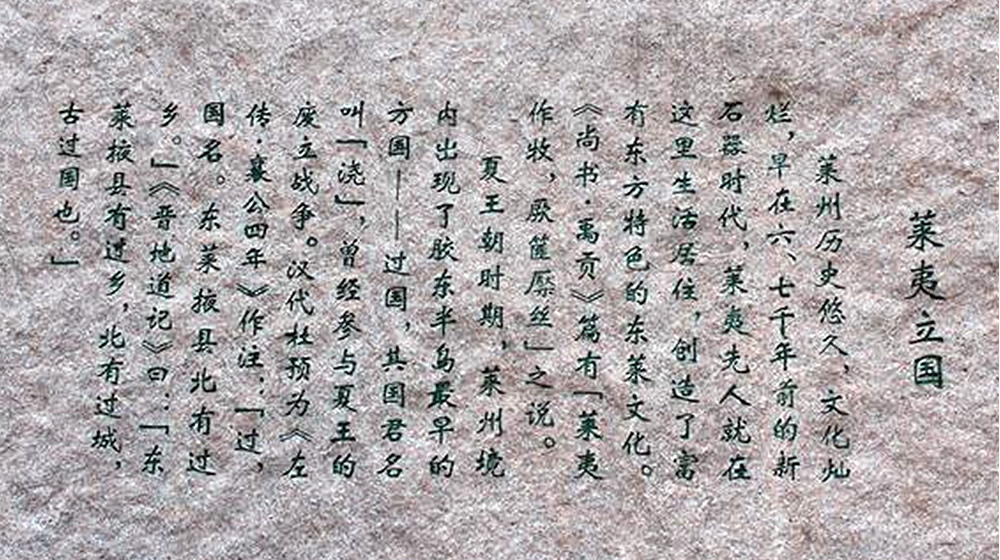 莱夷立国
莱州历史悠久、文化灿
烂，早在六、七千年前的新
石器时代，莱夷先人就在
这里生活居住，创造了富
有东方特色的东莱文化。
《尚书·禹贡》篇有「莱夷
作牧，厥篚檿丝」之说。
夏王朝时期，莱州境
内出现了胶东半岛最早的
方国——过国，其国君名
叫「浇」，曾经参与夏王的
废立战争。汉代杜预为《左
传·襄公四年》作注：「过，
国名。东莱掖县北有过
乡。」《晋地道记》曰：「东
莱掖县有过乡，北有过城，
古过国也。」